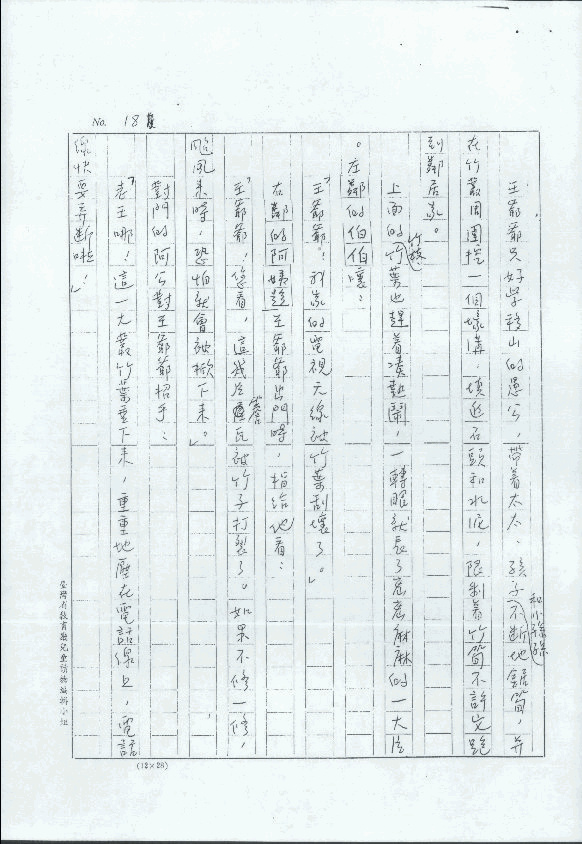 No. 18
王爺爺只好學移山的愚公,帶着太太、孩子和小孫孫不斷地鋸筍,并
在竹叢周圍挖一個壕溝,填進石頭和水泥,限制着竹筍不許它跑
到鄰居家。
上面的竹枝竹葉也趕着湊熱鬧,一轉眼就長了密密麻麻的一大片
。左鄰的伯伯嚷:
「王爺爺!我家的電視天線被竹葉刮壞了。」
右鄰的阿姨趁王爺爺出門時,指給他看:
「王爺爺,您看,這幾片屋簷瓦被竹子打裂了。如果不修一修,
颱風來時,恐怕就會被掀下來。」
對門的阿公對王爺爺招手:
「老王哪!這一大叢竹葉垂下來,重重地壓在電話線上,電話
線快要弄斷啦!」
臺灣省教育廳兒童讀物編輯小組
(12×28)